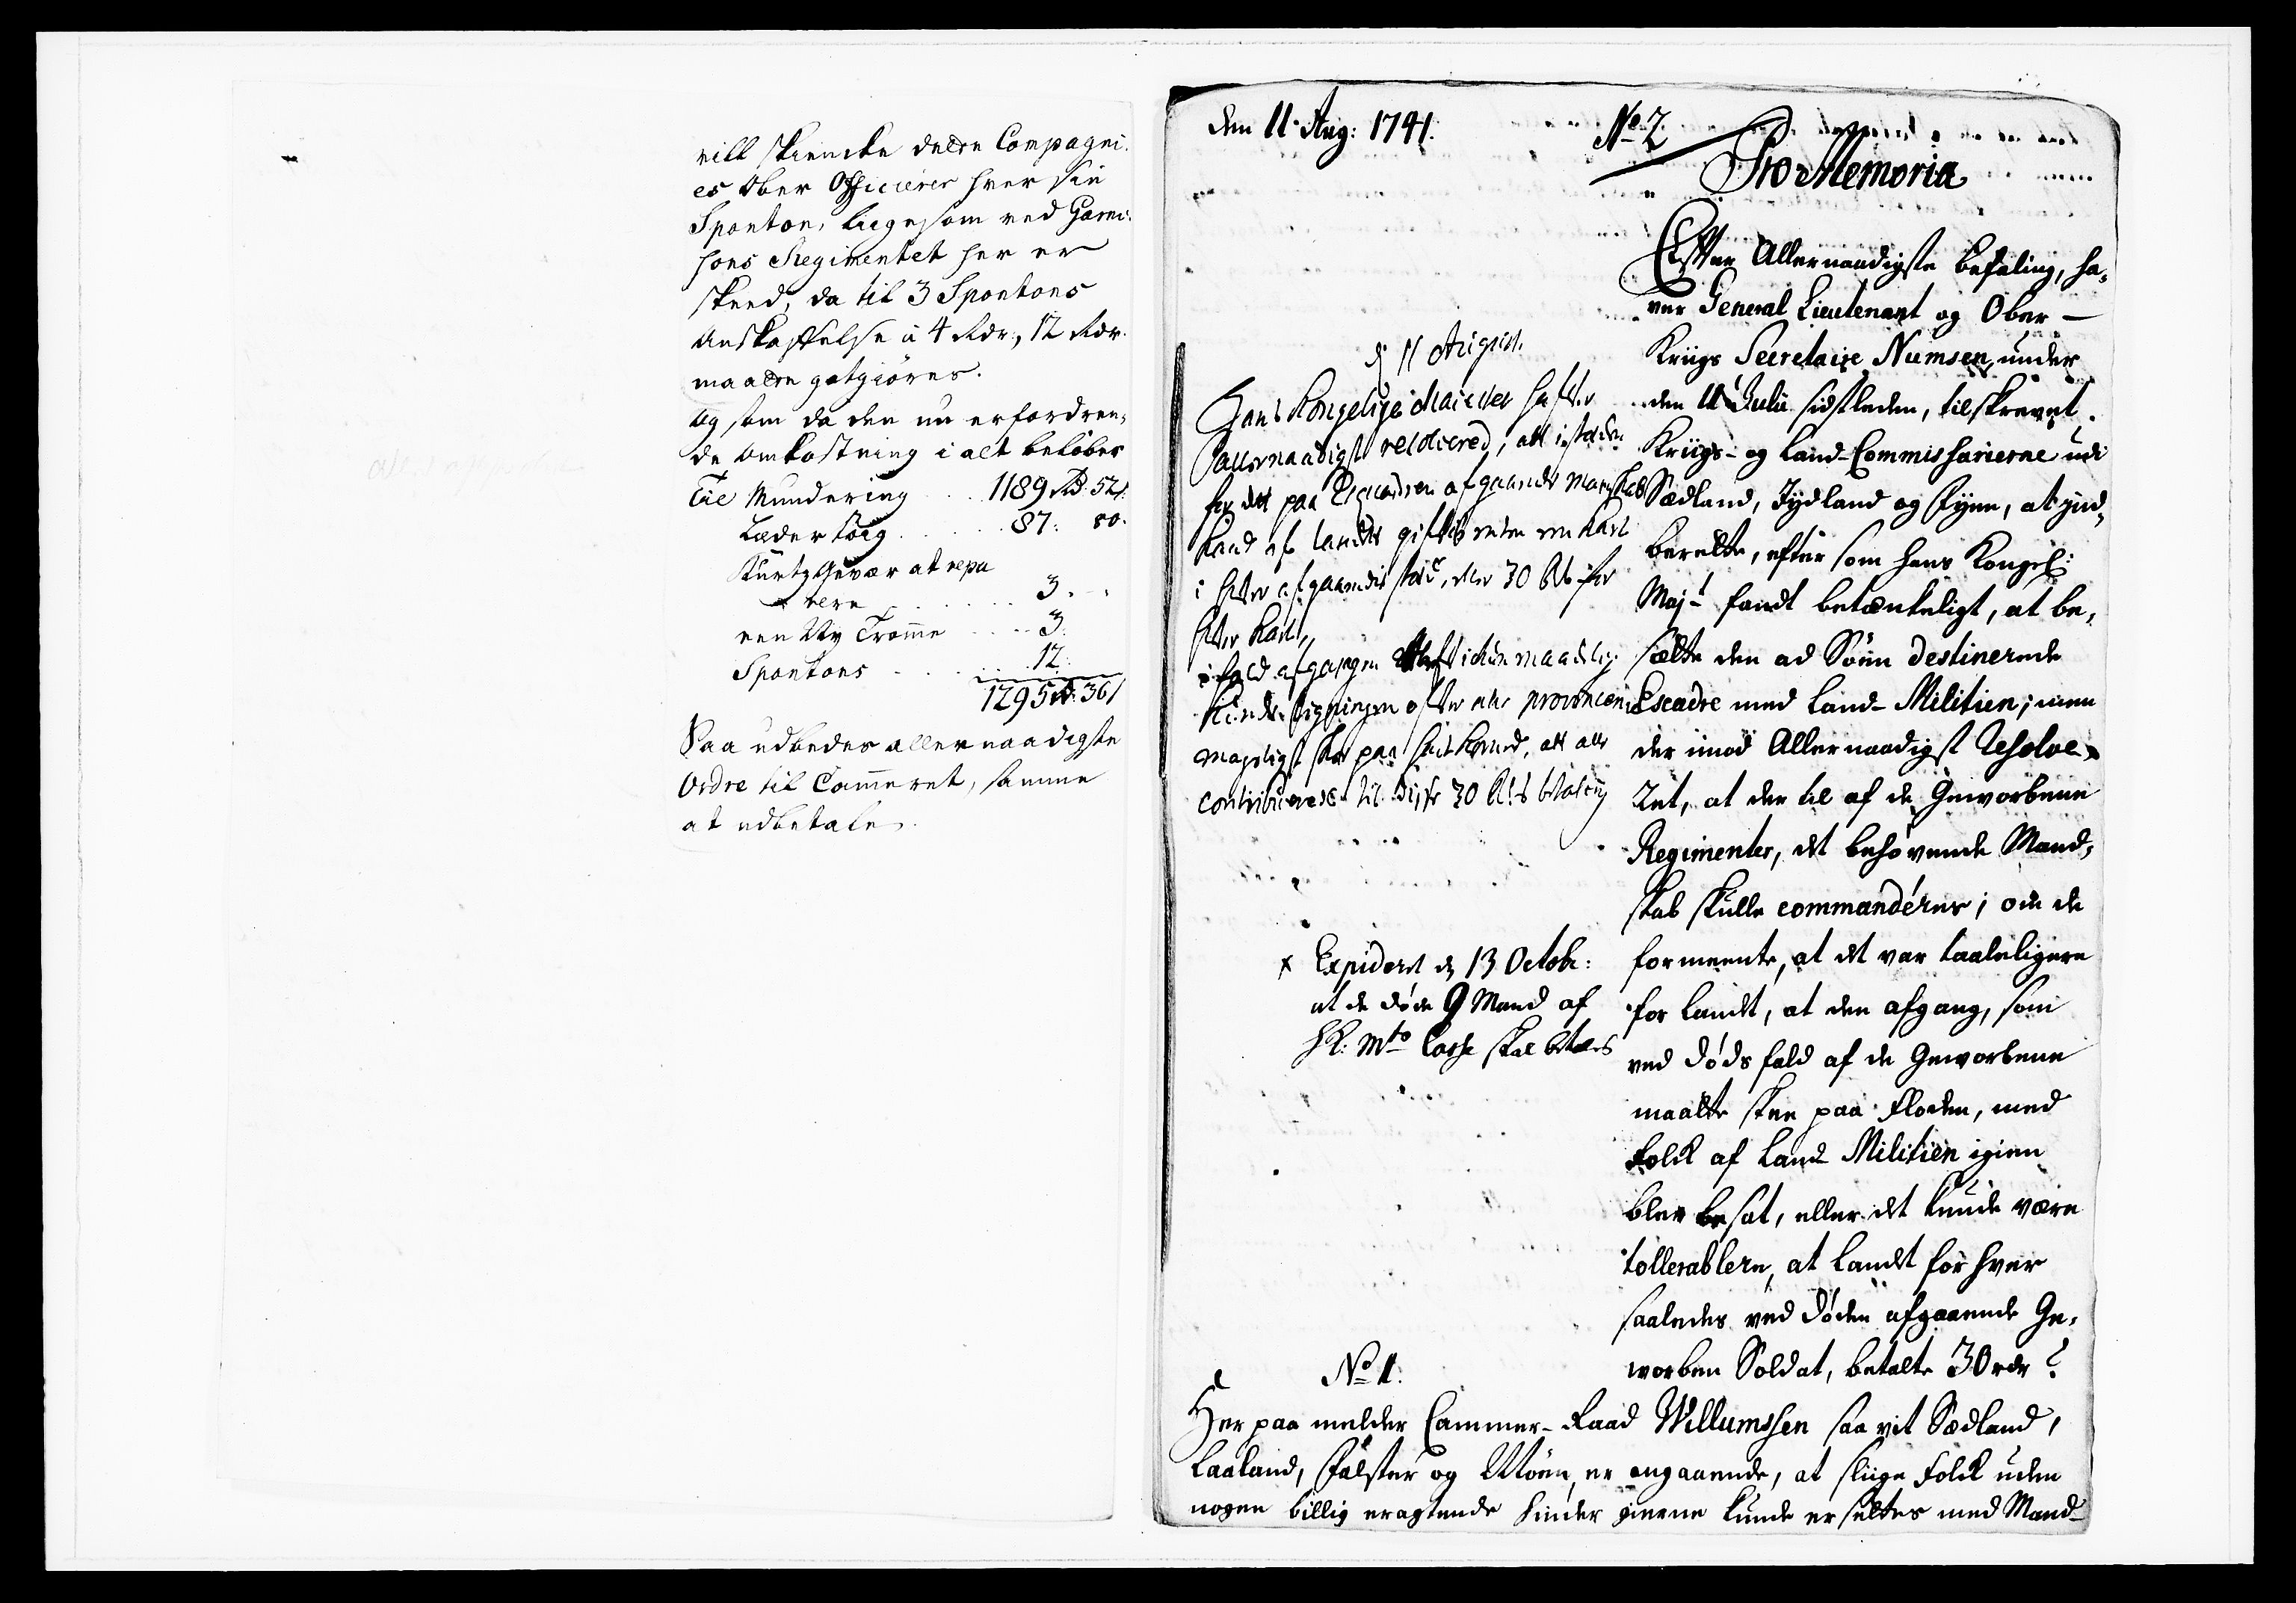 vill skiencke dette Compagni-
es Ober Officierer hver sin
Sponton, liigesom ved Garni-
sons Regimentet her er
skeed, da til 3 Spontons
Anskaffelse à 4 Rdr, 12 Rdr.
maatte godgiöres.
Og som da den nu erfordren-
de Omkostning i alt belöber
Til Mundering . . 1189 Rd: 52 s:
Lædertöig . . . 87: 80.
Kurtz Gevær at repa
rere . . . . . 3. -
een Ny Tromme . . . 3.
Spontons . . . . 12.
1295 Rd: 36 s
Saa udbedes allernaadigste
Ordre til Cammeret, samme
at udbetale.
den 11. Aug: 1741.
No. 2
Pro Memoria
Efter Allernaadigste Befaling, ha-
ver General Lieutenant og Ober-
Kriigs Secretaire Numsen, under
den 11 Julii sidstleden, tilskrevet
Kriigs- og Land-Commissarierne udi
Siælland, Jydland og Fyen, at ind-
berette, efter som Hans Kongel:
Majt. fandt betænkeligt, at be-
sætte den ad Söen destinerede
Escadre med Land-Militien; men
der imod Allernaadigst Resolve-
ret, at der til af de Gevorbene
Regimenter, det behövende Mand-
skab skulle commanderes; om de
formeente, at det var taaleligere
for Landet, at den afgang, som
ved Döds fald af de Gevorbene
maatte skee paa Floden, med
Folck af Land Militien igien
blev besat, eller det kunde være
tollerablere, at Landet for hver
saaledes ved Döden afgaaende Ge-
vorben Soldat, betalte 30 rdr?
d 11 August.
Hans Kongelige Majestet hafver
allernaadigst resolvered, at i steden
for det paa Esquadren afgaaende Mandskab
Land af Landet gifves enten een Karl
i hver afgaaendis sted, eller 30 Rd for
hver Karl,
ifald afgangen
provincen
mageligst skee paa
contribuerede til disse 30 Rd betaling
x Expideret d 13 Octobr:
at de döde 9 Mand af
H K: Mts Casse skal betales
No 1.
Her paa melder Cammer-Raad Willumssen saa vit Siælland,
Laaland, Falster og Möen, er angaaende, at sliige Folck uden
nogen billig eragtende Hinder gierne kunde ersettes med Mand-